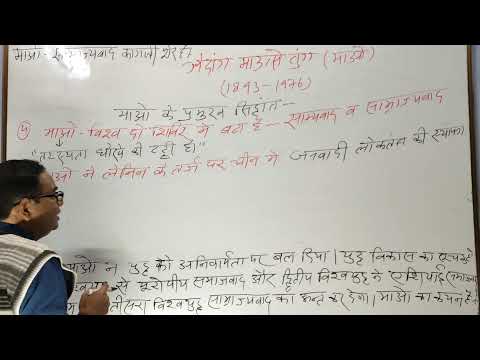 माओ- साम्राज्यवाद कागजी शेर है।
माओत्से तुंग (माओ)
(1893-1976)
माओ के प्रमुख सिद्धांत-
माओ- विश्व दो शिविर में बंटा है- साम्यवाद व साम्राज्यवाद
"तटस्थता धोखे की टट्टी है।"
ने लेनिन के तर्ज पर चीन में जनवादी लोकतंत्र की स्थापना
माओ ने युद्ध की अनिवार्यता पर बल दिया। युद्ध विकास का
से यूरोपीय समाजवाद और द्वितीय विश्वयुद्ध ने एशियाई
तीसरा विश्वयुद्ध साम्राज्यवाद का अन्त कर देगा। माओ का कथन है